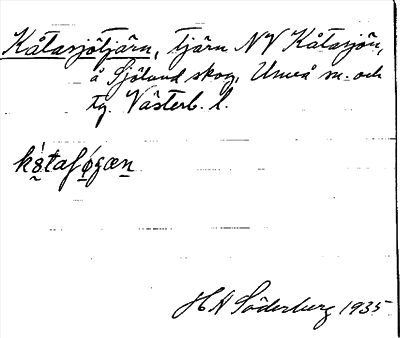 Kåtasjötjärn, tjärn NV Kåtasjön,
å Sjölund skog, Umeå sn. och
tg. Västerb. l.
HA Söderberg 1935